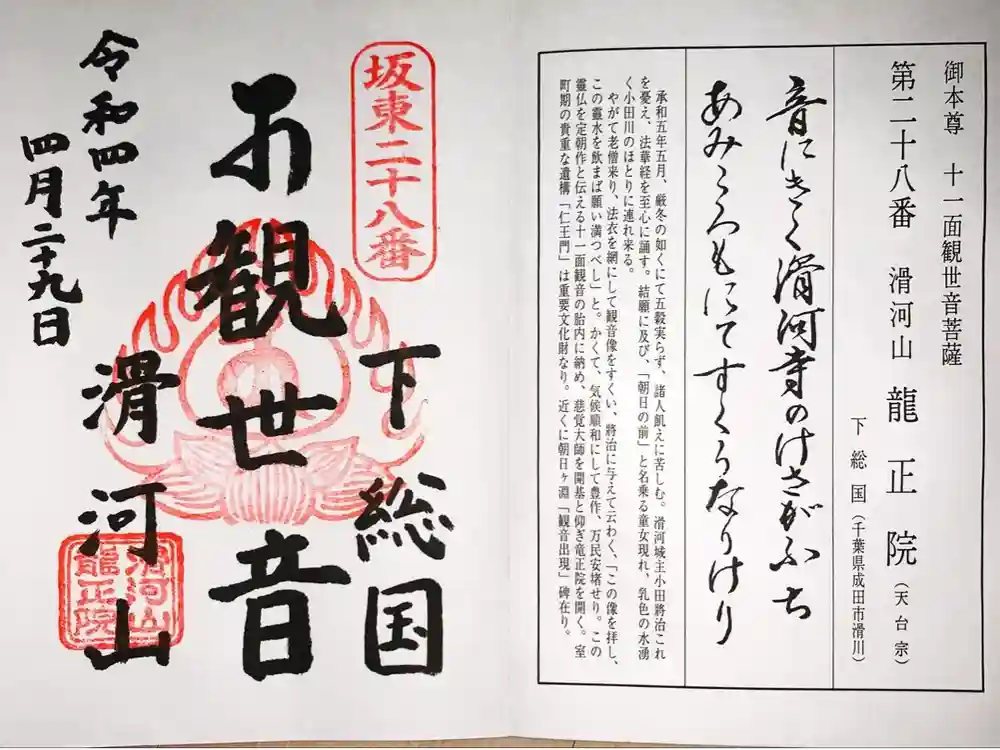 御本尊　十一面観世音菩薩
第二十八番　滑河山　龍正院（天台宗）
下総国（千葉県成田市滑川）
音にきく滑河寺のけさがふち
あみころもにてすくうなりけり
承和五年五月、厳冬の如くにて五穀実らず、諸人飢えに苦しむ。滑河城主小田將治これ
を憂え、法華経を至心に誦す。結願に及び、「朝日の前」と名乗る童女現れ、乳色の水湧
く小田川のほとりに連れ来る。
やがて老僧来り、法衣を網にして観音像をすくい、將治に与えて云わく、「この像を拝し、
この靈水を飲まば願い満つべし」と。かくて、気候順和にして豊作、万民安堵せり。この
靈仏を定朝作と伝える十一面観音の胎内に納め、慈覚大師を開基と仰ぎ竜正院を開く。室
町期の貴重な遺構「仁王門」は重要文化財なり。近くに朝日ヶ淵「観音出現」碑在り。
坂東二十八番
下総国
観世音
滑河山
滑河山
龍正院
令和四年
四月二十九日